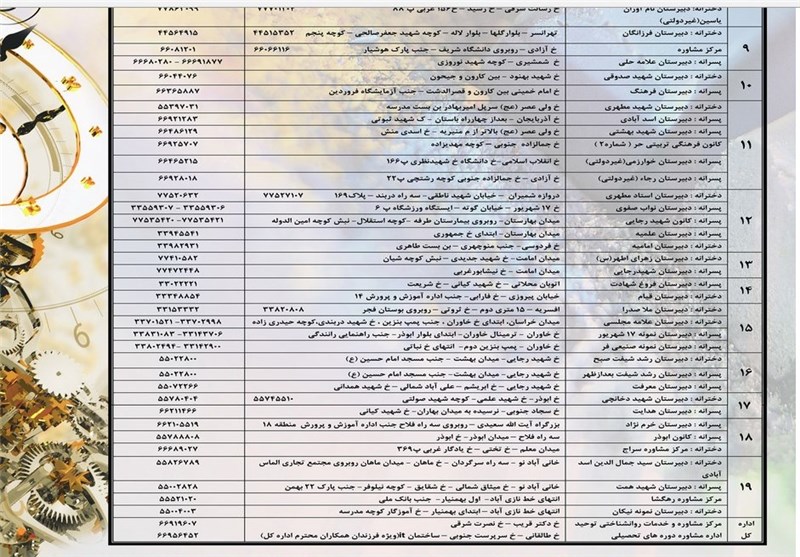 دخترانه : دبیرستان نام آوران خ ثامت شرقی – خ رشید – خ ۱۵۶ غربی پ ۸۸ ۷۷۷۰۱۲۰۲ ۷۷۸۶۱۰۹۹
یاسین(غیردولتی)
دخترانه : دبیرستان فرزانگان تهرانسر – بلوارگلها – بلوار لاله – کوچه شهید جعفرصالحی – کوچه پنجم ۴۴۵۱۵۳۵۲ ۴۴۵۶۴۹۱۵
۹ مرکز مشاوره خ آزادی – روبروی دانشگاه شریف – جنب پارک هوشیار ۶۶۰۶۶۱۱۶ ۶۶۰۸۱۲۰۱
پسرانه : دبیرستان علامه حلی خ شمشیری – کوچه شهید نوروزی ۶۶۶۹۱۸۷۷ – ۶۶۶۸۰۲۸۰
۱۰ پسرانه : دبیرستان شهید صدوقی خ شهید بهنود – بین کارون و جیحون ۶۶۰۴۴۰۷۶
پسرانه : دبیرستان فرهنگ خ امام خمینی بین کارون و قصرالدشت – جنب آزمایشگاه فروردین ۶۶۳۶۵۸۸۷
۱۱ دخترانه : دبیرستان شهید مطهری خ ولی عصر (عج) سرپل امیربهادر بن بست مدرسه ۵۵۳۹۷۰۳۱
پسرانه : دبیرستان اسد آبادی خ آذربایجان – بعداز چهارراه باستان – ک شهید ثبوتی ۶۶۹۲۱۲۸۳
پسرانه : دبیرستان شهید بهشتی خ ولی عصر (عج) بالاتر از م منیریه – خ اسدی منش ۶۶۴۸۶۱۲۹
کانون فرهنگی تربیتی حر ( شماره۲ ) خ جمالزاده جنوبی – کوچه مهدیزاده ۶۶۹۲۵۷۰۷
پسرانه : دبیرستان خوارزمی(غیردولتی) خ انقلاب اسلامی–خ دانشگاه خ شهیدنظری پ۱۶۶ ۶۶۴۶۵۲۱۵
پسرانه : دبیرستان رجاء (غیردولتی) خ آزادی – خ جمالزاده جنوبی کوچه رشتچی پ۲۲ ۶۶۹۲۸۰۱۸
۱۲ دخترانه : دبیرستان استاد مطهری دروازه شمیران – خیابان شهید ناطقی– سه راه دربند – پلاک۱۶۹ ۷۷۵۲۷۱۰۷ ۷۷۵۲۰۶۳۲
پسرانه : دبیرستان نواب صفوی خ ۱۷ شهریور – خیابان گوته – ایستگاه ورزشگاه پ ۶ ۳۳۵۵۹۳۰۶ – ۳۳۵۵۹۳۰۷
پسرانه : کانون شهید رجایی میدان بهارستان– روبروی بیمارستان طرفه –کوچه استقلال– نبش کوچه امین الدوله ۷۷۵۳۵۴۲۱– ۷۷۵۳۵۴۲۰
پسرانه : دبیرستان علمیه میدان بهارستان– ابتدای خ جمهوری ۳۳۹۴۵۵۴۱
پسرانه : دبیرستان امامیه خ فردوسی– جنب منوچهری – بن بست طاهری ۳۳۹۸۲۹۳۱
۱۳ دخترانه : دبیرستان زهرای اطهر(س) میدان امامت– خ شهید جدیدی – نبش کوچه شیان ۷۷۴۱۰۵۸۲
پسرانه : دبیرستان شهیدرجایی میدان امامت – خ نیشابورغربی ۷۷۴۷۲۴۴۸
۱۴ پسرانه : دبیرستان فروغ شهادت اتوبان محلاتی – خ شهید کیانی – خ شریعت ۳۳۰۲۲۲۲۱
پسرانه : دبیرستان قیام خیابان پیروزی – خ فارابی– جنب اداره آموزش و پرورش ۱۴ ۳۳۳۴۸۸۵۴
۱۵ دخترانه : دبیرستان ملا صدرا افسریه – ۱۵ متری دوم – خ ثروتی – روبروی بوستان فجر ۳۳۸۲۰۸۰۸ ۳۳۱۵۳۳۳۲
پسرانه : دبیرستان علامه مجلسی میدان خراسان، ابتدای خ خاوران ، جنب پمپ بنزین ، خ شهید دربندی،کوچه حیدری زاده ۳۳۷۰۲۹۹۸– ۳۳۷۰۱۵۲۱
پسرانه : دبیرستان نمونه ۱۷ شهریور خ خاوران – ترمینال خاوران – ابتدای بلوار ابوذر– جنب راهنمایی رانندگی ۳۳۱۴۳۷۰۶ – ۳۳۸۳۱۰۸۲
پسرانه : دبیرستان نمونه صنیعی فر خ خاوران – پمپ بنزین دوم – انتهای خ نباتی ۳۳۱۴۲۹۰۰ – ۳۳۸۰۲۴۹۴
۱۶ دخترانه : دبیرستان رشد شیفت صبح خ شهید رجایی – میدان بهشت – جنب مسجد امام حسین (ع) ۵۵۰۲۲۸۰۰
پسرانه : دبیرستان رشد شیفت بعدازظهر خ شهید رجایی – میدان بهشت – جنب مسجد امام حسین (ع) ۵۵۰۲۲۸۰۰
پسرانه : دبیرستان معرفت خ شهید رجایی – خ ابریشم – علی آباد شمالی – خ شهید همدانی ۵۵۰۷۲۲۶۶
۱۷ دخترانه : دبیرستان شهید دخانچی خ ابوذر– خ شهید علمی– کوچه شهید صولتی ۵۵۷۴۵۵۱۰ ۵۵۷۸۰۴۰۴
پسرانه : دبیرستان هدایت خ سجاد جنوبی– نرسیده به میدان بهاران– خ شهید کیانی ۶۶۲۱۱۴۶۶
۱۸ دخترانه : دبیرستان خرم نژاد بزرگراه آیت الله سعیدی – روبروی سه راه فلاح جنب اداره آموزش و پرورش منطقه ۱۸ ۶۶۲۱۰۵۵۱۹
پسرانه : کانون ابوذر سه راه فلاح – میدان ابوذر – خ ابوذر ۵۵۷۸۸۸۰۸
مرکز مشاوره سراج میدان معلم – خ تختی – خ یادگار غربی پ۳۶۹ ۶۶۶۸۹۰۲۷
۱۹ دخترانه : دبیرستان سید جمال الدین اسد خانی آباد نو – سه راه سرگردان – خ ماهان – میدان ماهان روبروی مجتمع تجاری الماس ۵۵۸۲۶۷۸۹
آبادی
پسرانه : دبیرستان شهید همت خانی آباد نو – خ میثاق شمالی – خ شقایق – کوچه نیلوفر– جنب پارک ۲۲ بهمن ۵۵۰۰۲۸۲۸
مرکز مشاوره رهگشا انتهای خط نازی آباد– اول بهمنیار – جنب بانک ملی ۵۵۵۲۱۰۲۰
دخترانه : دبیرستان نمونه نیکان انتهای خط نازی آباد– ابتدای بهمنیار – خ آموزگار کوچه مدرسه ۵۵۰۰۴۰۰۳
اداره مرکز مشاوره و خدمات روانشناختی توحید خ دکتر قریب – خ نصرت شرقی ۶۶۹۱۹۶۰۷
کل اداره مشاوره دوره های تحصیلی خ طالقانی – خ سرپرست جنوبی – ساختمان it(ویژه فرزندان همکاران محترم اداره کل) ۶۶۹۵۶۴۵۲